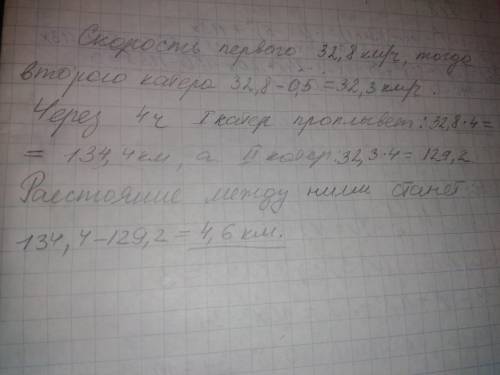 Скорость первого 32,8 км/ч, тогда
второго катера 32,8-0,5=32,3 км/ч.
Через 4ч I катер проплывет: 32,8·4=
= 134,4км, а II катер 32,3·4=129,2
Расстояние между ними станет
134,4-129,2=4,6 км.